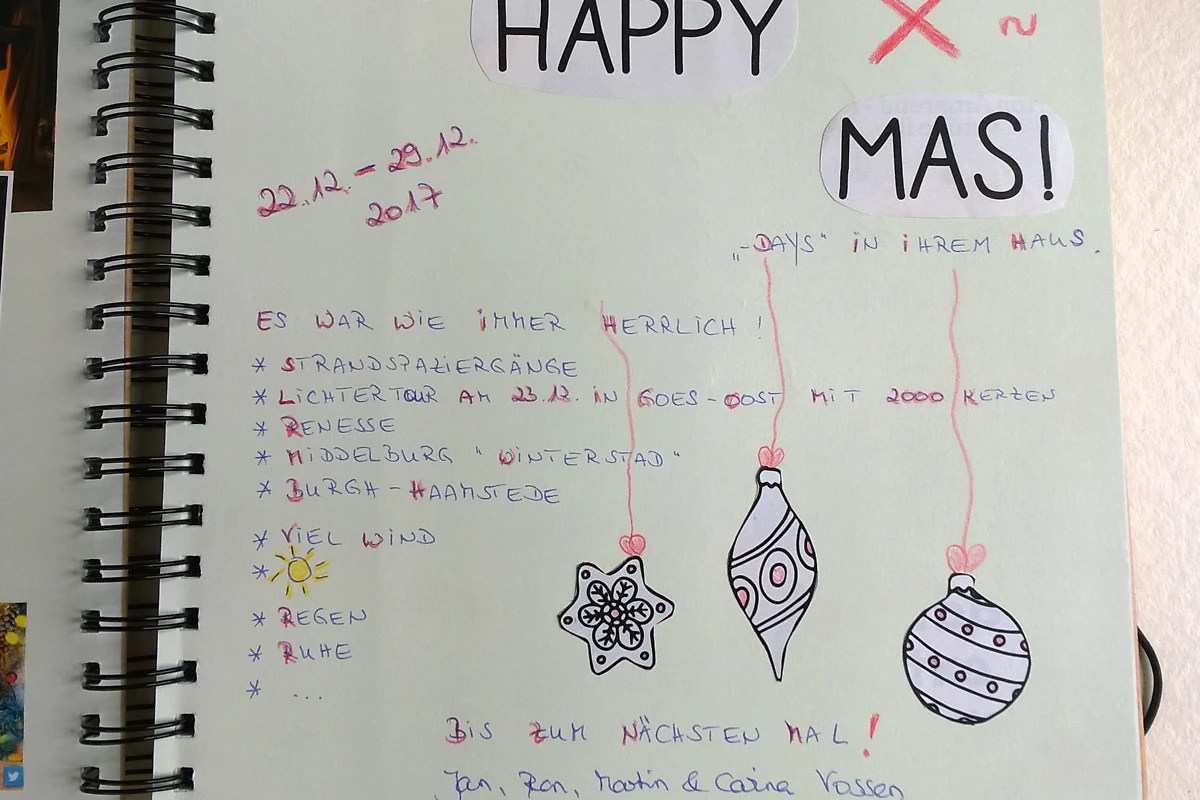 HAPPY X ~
MAS!
22.12. – 29.12.
2017
„-DAYS" IN IHREM HAUS.
ES WAR WIE IMMER HERRLICH!
* STRANDSPAZIERGÄNGE
* LICHTERTOUR AM 23.12. IN GOES-OOST MIT 2000 KERZEN
* RENESSE
* MIDDELBURG "WINTERSTAD"
* BURGH-HAAMSTEDE
* VIEL WIND
*
* REGEN
* RUHE
* ...
BIS ZUM NÄCHSTEN MAL!
Jan, Ron, Martin & Carina Vossen